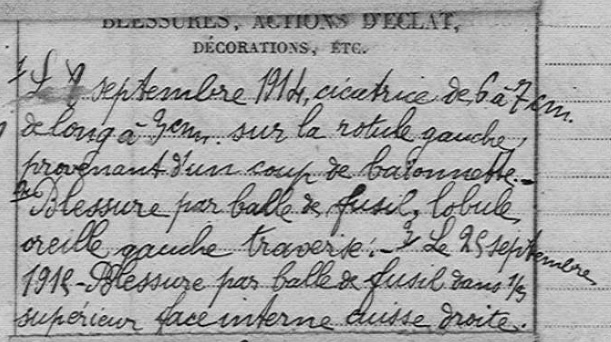 BLESSURES, ACTIONS D'ÉCLAT,
DÉCORATIONS, ETC.
1° Le septembre 1914, cicatrice de 6 à 7 cm.
de long à 3 cm. sur la rotule gauche,
provenant d'un coup de baïonnette.-
2° Blessure par balle de fusil, lobule
oreille gauche traversé.- 3° Le 25 septembre
1915 - Blessure par balle de fusil dans 1/3
supérieur face interne cuisse droite.